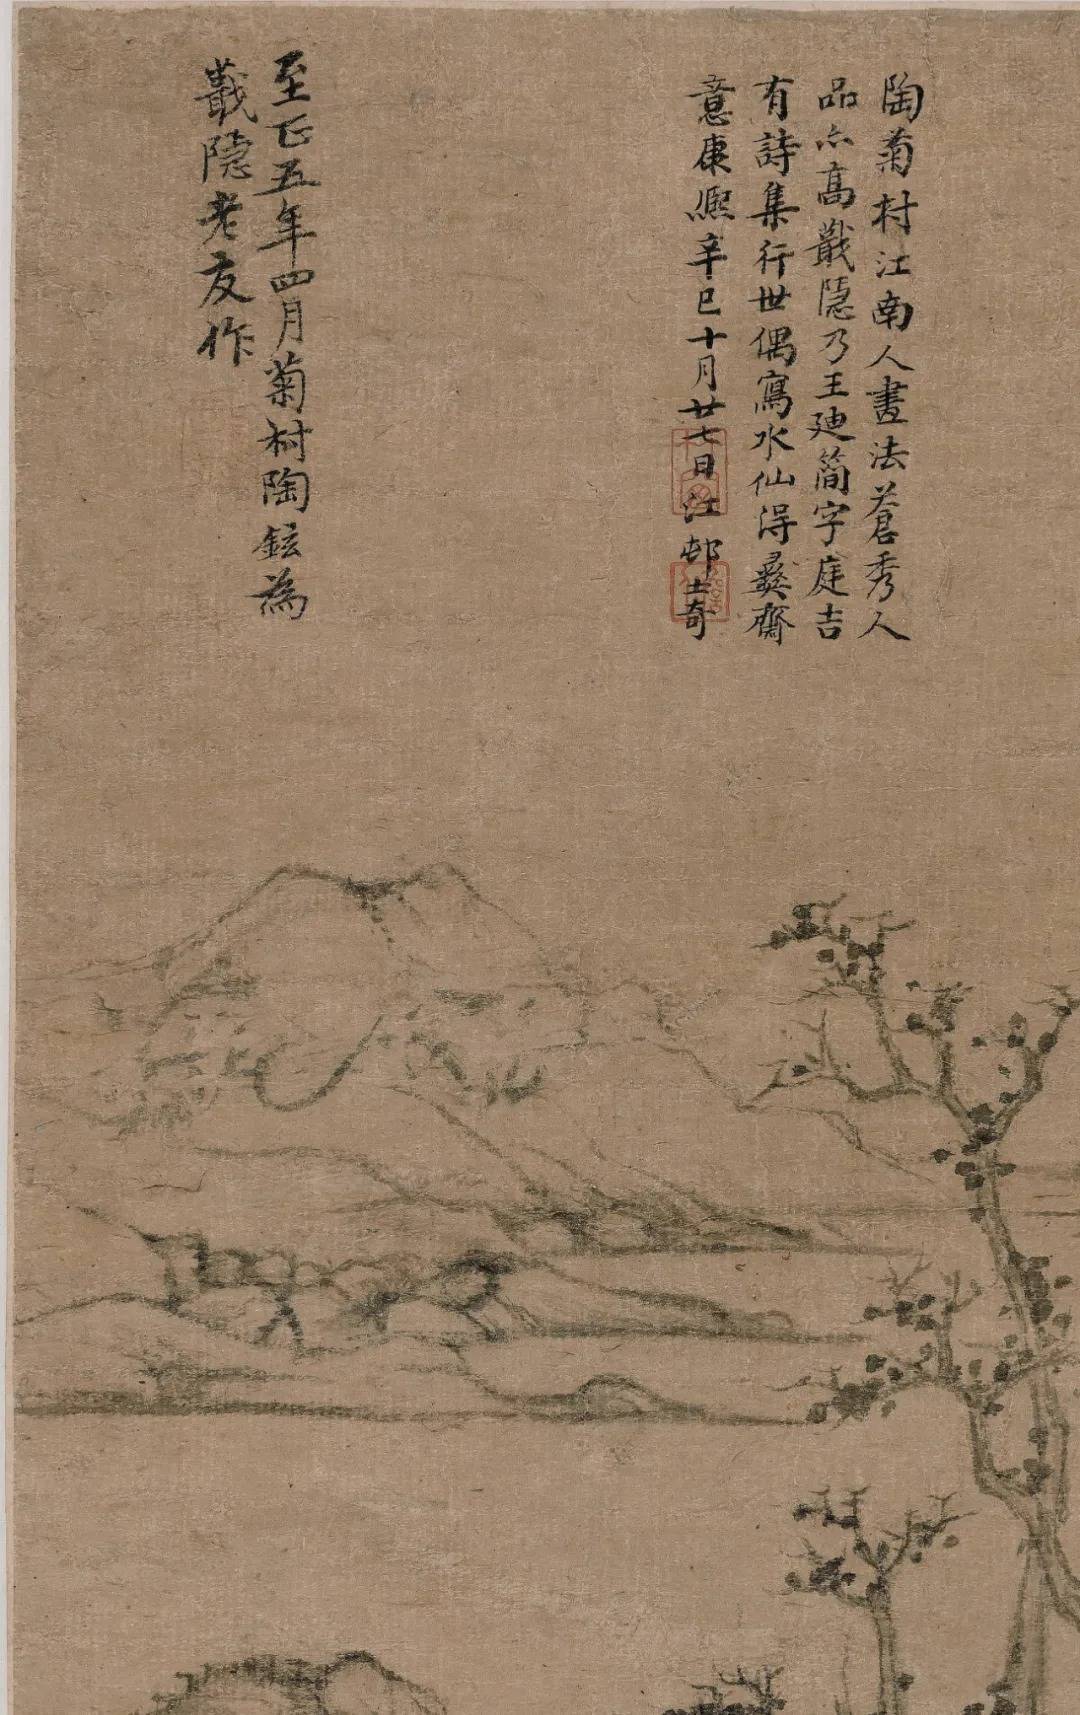 陶菊村江南人畫法蒼秀人
品亦高戢隱乃王廸簡字庭吉
有詩集行世偶寫水仙得彝齋
意康熈辛巳十月廿七日江邨士奇
至正五年四月菊村陶鉉為
戢隱老友作